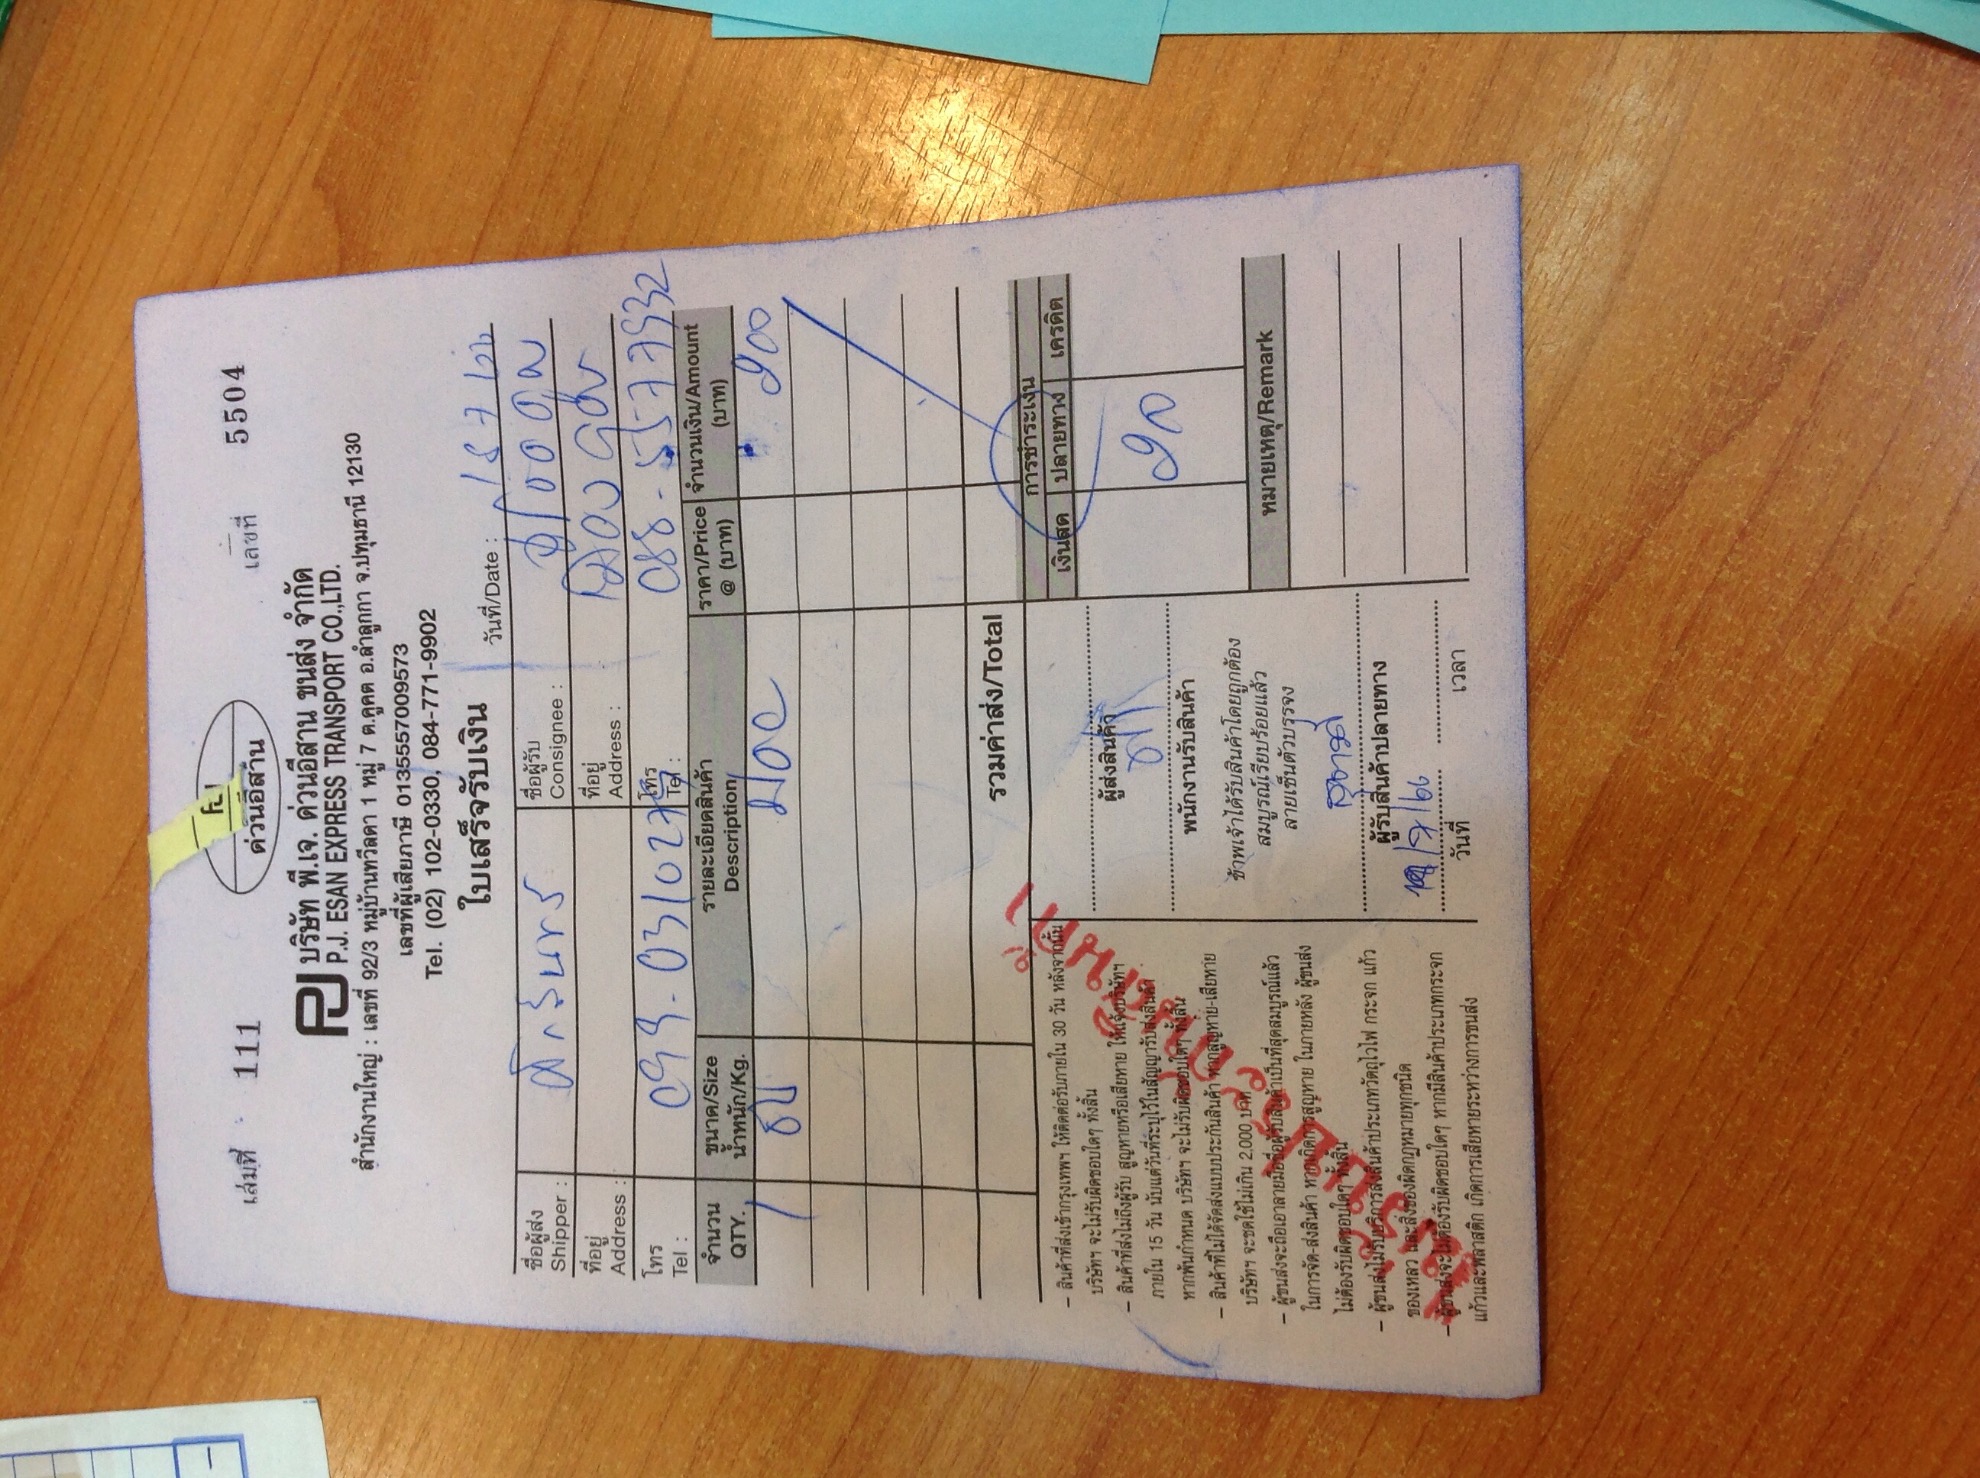 เล่มที่ 111 เลขที่ 5504
ด่วนอีสาน
PJ บริษัท พี.เจ. ด่วนอีสาน ขนส่ง จำกัด
P.J. ESAN EXPRESS TRANSPORT CO.,LTD.
สำนักงานใหญ่ : เลขที่ 92/3 หมู่บ้านทวีลดา 1 หมู่ 7 ต.คูคต อ.ลำลูกกา จ.ปทุมธานี 12130
เลขที่ผู้เสียภาษี 0135557009573
Tel. (02) 102-0330, 084-771-9902
ใบเสร็จรับเงิน
วันที่/Date :
ชื่อผู้ส่ง
Shipper :
ชื่อผู้รับ
Consignee :
ที่อยู่
Address :
ที่อยู่
Address :
โทร
Tel :
โทร
Tel : 088-5577932
จำนวน
QTY.
ขนาด/Size
น้ำหนัก/Kg.
รายละเอียดสินค้า
Description
ราคา/Price
@ (บาท)
จำนวนเงิน/Amount
(บาท)
1
รวมค่าส่ง/Total
– สินค้าที่ส่งเข้ากรุงเทพฯ ให้ติดต่อรับภายใน 30 วัน หลังจากนั้น
บริษัทฯ จะไม่รับผิดชอบใดๆ ทั้งสิ้น
– สินค้าที่ส่งไม่ถึงผู้รับ สูญหายหรือเสียหาย ให้แจ้งบริษัทฯ
ภายใน 15 วัน นับแต่วันที่ระบุไว้ในสัญญารับส่งสินค้า
หากพ้นกำหนด บริษัทฯ จะไม่รับผิดชอบใดๆ ทั้งสิ้น
– สินค้าที่ไม่ได้จัดส่งแบบประกันสินค้า หากสูญหาย-เสียหาย
บริษัทฯ จะชดใช้ไม่เกิน 2,000 บาท
– ผู้ขนส่งจะถือเอาลายมือชื่อผู้รับสินค้าเป็นที่สุดสมบูรณ์แล้ว
ในการจัด-ส่งสินค้า หากเกิดการสูญหาย ในภายหลัง ผู้ขนส่ง
ไม่ต้องรับผิดชอบใดๆ ทั้งสิ้น
– ผู้ขนส่งไม่รับบริการส่งสินค้าประเภทวัตถุไวไฟ กระจก แก้ว
ของเหลว และสิ่งของผิดกฎหมายทุกชนิด
– ผู้ขนส่งจะไม่ต้องรับผิดชอบใดๆ หากมีสินค้าประเภทกระจก
แก้วและพลาสติก เกิดการเสียหายระหว่างการขนส่ง
ผู้ส่งสินค้า
พนักงานรับสินค้า
ข้าพเจ้าได้รับสินค้าโดยถูกต้อง
สมบูรณ์เรียบร้อยแล้ว
ลายเซ็นตัวบรรจง
ผู้รับสินค้าปลายทาง
วันที่ เวลา
การชำระเงิน
เงินสด ปลายทาง เครดิต
หมายเหตุ/Remark